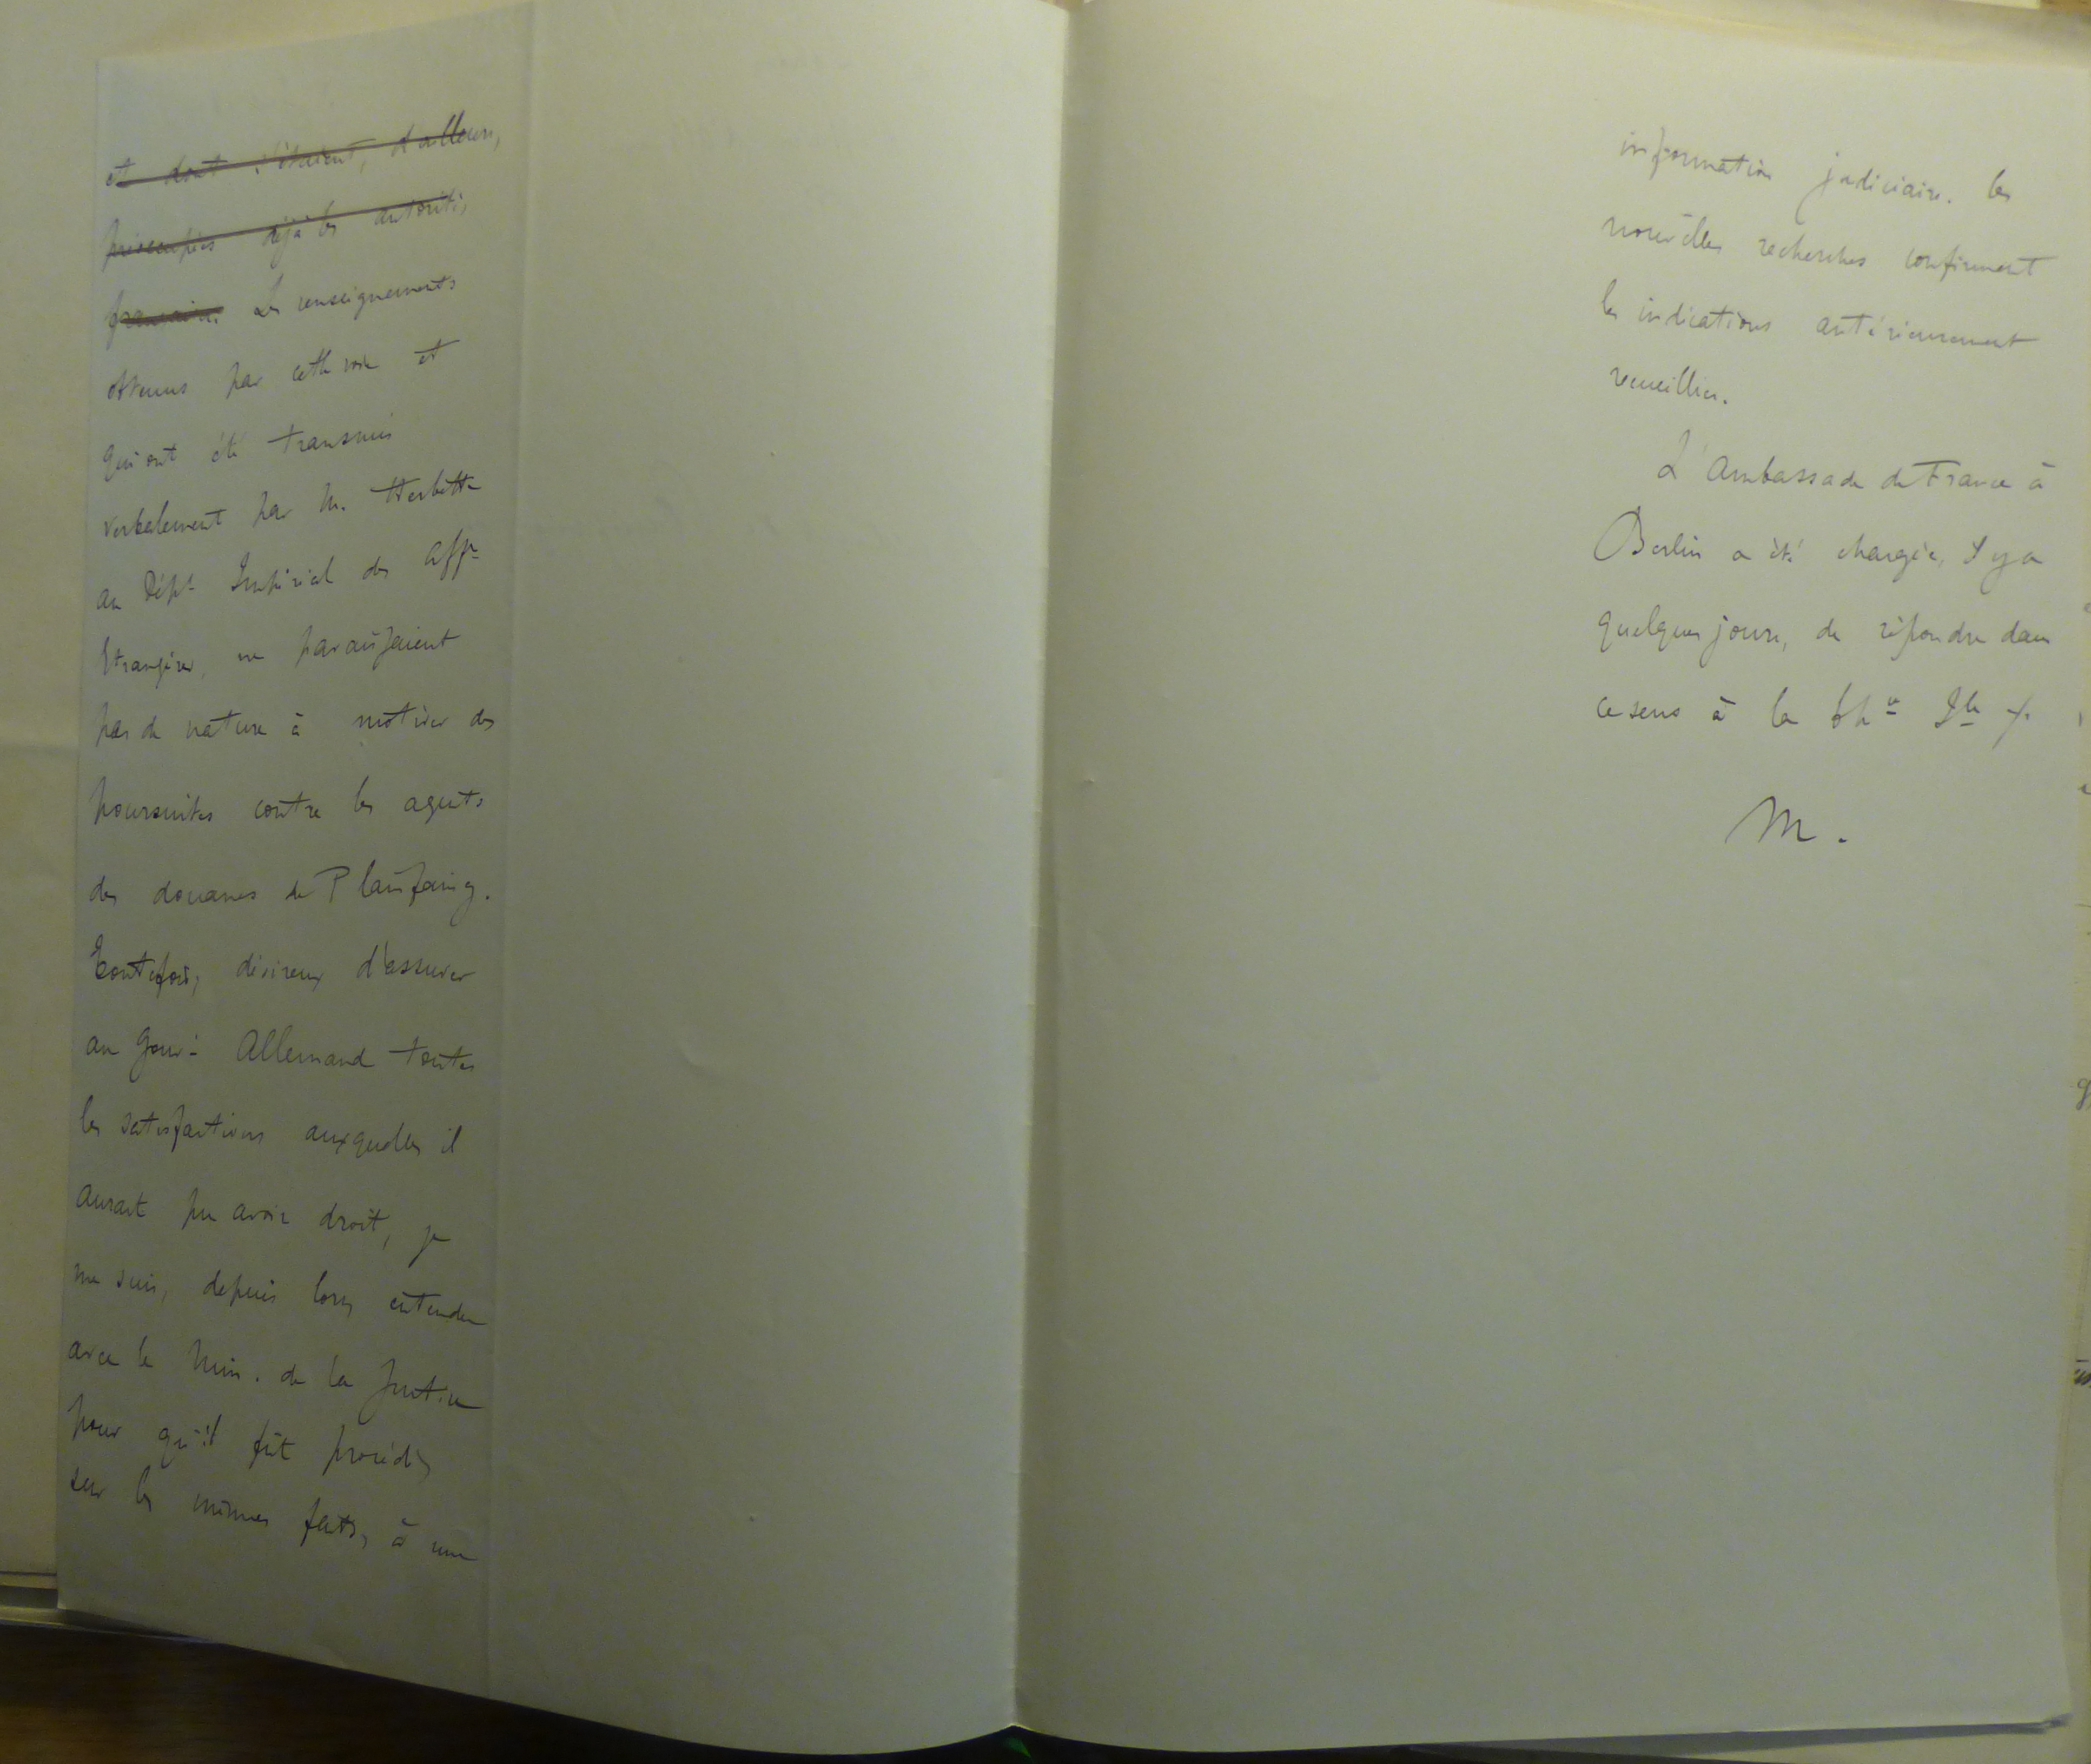 et dont s'étaient, d'ailleurs,
préoccupées déjà les autorités
françaises. Les renseignements
obtenus par cette voie et
qui ont été transmis
verbalement par M. Herbette
au Dépt Impérial des Affres
Etrangères, ne paraissaient
pas de nature à motiver des
poursuites contre les agents
des douanes de Plainfaing.
Toutefois, désireux d'assurer
au Gouvt Allemand toutes
les satisfactions auxquelles il
aurait pu avoir droit, je
me suis, depuis lors, entendu
avec le Min. de la Justice
pour qu'il fût procédé,
sur les mêmes faits, à une
information judiciaire. Les
nouvelles recherches confirment
les indications antérieurement
recueillies.
L'Ambassade de France à
Berlin a été chargée, il y a
quelques jours, de répondre dans
ce sens à la Chrie Ile
M.